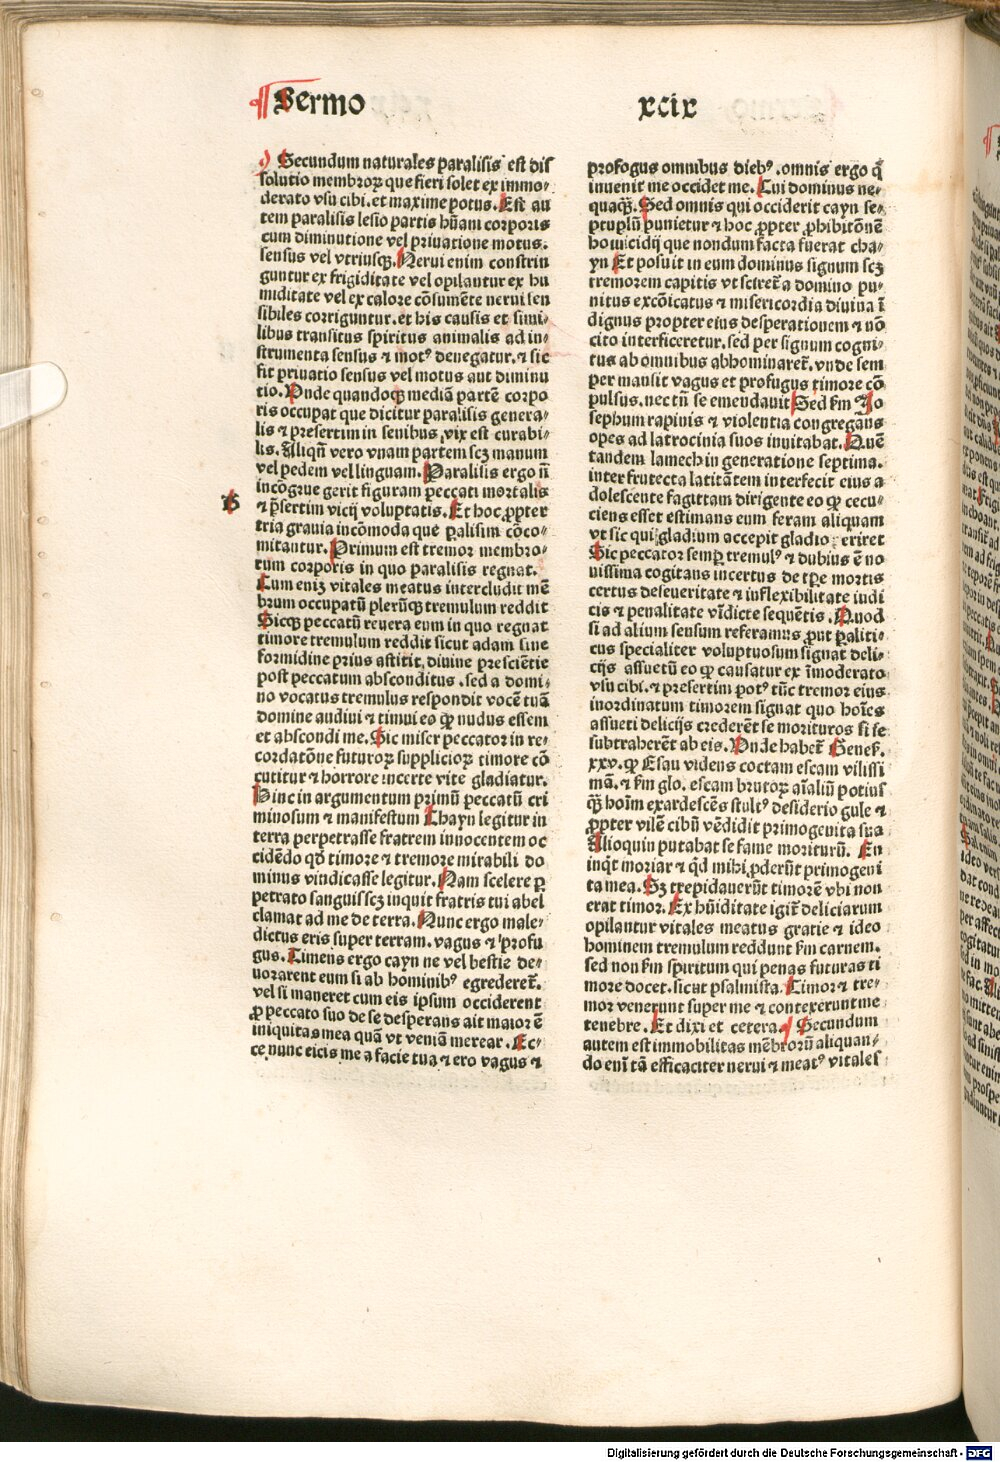 Sermo
xcix
Secundum naturales paralisis est dis
solutio membroꝝ que fieri solet ex immo⸗
derato vsu cibi. et maxime potus. Est au
tem paralisis lesio partis hūani corporis
cum diminutione vel priuatione motus.
sensus vel vtriusqꝫ. Nerui enim constrin
guntur ex frigiditate vel opilantur ex hu
miditate vel ex calore cōsumēte nerui sen
sibiles corriguntur. et his causis et simi⸗
libus transitus spiritus animalis ad in⸗
strumenta sensus ⁊ motꝰ denegatur. ⁊ sic
fit priuatio sensus vel motus aut diminu
tio. Vnde quandoqꝫ mediā partē corpo
ris occupat que dicitur paralisis genera⸗
lis ⁊ presertim in senibus, vix est curabi⸗
lis. Aliqñ vero vnam partem scꝫ manum
vel pedem vel linguam. Paralisis ergo ñ
incōgrue gerit figuram peccati mortalis
B
⁊ p̄sertim vicij voluptatis. Et hoc ꝓpter
tria grauia incōmoda que palisim cōco⸗
mitantur. Primum est tremor membro⸗
rum corporis in quo paralisis regnat.
Cum eniꝫ vitales meatus intercludit mē
brum occupatū plerūqꝫ tremulum reddit
Sicqꝫ peccatū reuera eum in quo regnat
timore tremulum reddit sicut adam sine
formidine prius astitit, diuine presciētie
post peccatum absconditus. sed a domi⸗
no vocatus tremulus respondit vocē tuā
domine audiui ⁊ timui eo ꝙ nudus essem
et abscondi me. Sic miser peccator in re⸗
cordatōne futuroꝝ supplicioꝝ timore cō
cutitur ⁊ horrore incerte vite gladiatur.
Hinc in argumentum primū peccatū cri
minosum ⁊ manifestum Chayn legitur in
terra perpetrasse fratrem innocentem oc
cidēdo qđ timore ⁊ tremore mirabili do
minus vindicasse legitur. Nam scelere ꝑ
petrato sanguis scꝫ inquit fratris tui abel
clamat ad me de terra. Nunc ergo male⸗
dictus eris super terram. vagus ⁊ profu
gus. Timens ergo cayn ne vel bestie de⸗
uorarent eum si ab hominibꝰ egrederet̄.
vel si maneret cum eis ipsum occiderent
ꝓ peccato suo de se desperans ait maior ē
iniquitas mea quā vt veniā merear. Ec⸗
ce nunc eicis me a facie tua ⁊ ero vagus ⁊
profogus omnibus diebꝰ. omnis ergo q̄
inuenit me occidet me. Cui dominus ne⸗
quaqꝫ. Sed omnis qui occiderit cayn se⸗
ptuplū punietur ⁊ hoc ꝓpter ꝓhibitōnē
homicidij que nondum facta fuerat cha⸗
yn Et posuit in eum dominus signum scꝫ
tremorem capitis vt sciret̄ a domino pu⸗
nitus excōicatus ⁊ misericordia diuina ī
dignus propter eius desperationem ⁊ nō
cito interficeretur. sed per signum cogni⸗
tus ab omnibus abhominaret̄. vnde sem
per mansit vagus et profugus timore cō
pulsus. nec tñ se emendauit Sed ẜm Jo
sephum rapinis ⁊ violentia congregans
opes ad latrocinia suos inuitabat. Quē
tandem lamech in generatione septima.
inter frutecta latitātem interfecit eius a
dolescente sagittam dirigente eo ꝙ cecu⸗
ciens esset estimans eum feram aliquam
vt sic qui gladium accepit gladio periret
Sic peccator semꝑ tremulꝰ ⁊ dubius ē no
uissima cogitans incertus de tp̄e mortis
certus de seueritate ⁊ inflexibilitate iudi
cis ⁊ penalitate vīdicte sequētis. Quod
si ad alium sensum referamus ꝓut ꝑaliti⸗
cus specialiter voluptuosum signat deli⸗
cijs assuetū eo ꝙ causatur ex īmoderato
vsu cibi. ⁊ presertim potꝰ tūc tremor eius
inordinatum timorem signat quo hoīes
assueti delicijs crederēt se morituros si se
subtraherēt ab eis. Vnde habet̄ Genes̄.
xxv. ꝙ Esau videns coctam escam vilissi
mā. ⁊ ẜm glo. escam brutoꝝ aīaliū potius
qꝫ hoīm exardescēs stultꝰ desiderio gule ⁊
ꝓpter vilē cibū vēdidit primogenita sua
Alioquin putabat se fame moriturū. En
inqͥt moriar ⁊ qͥd mihi ꝓderūt primogeni
ta mea. Sꝫ trepidauerūt timorē vbi non
erat timor. Ex hūiditate igit̄ deliciarum
opilantur vitales meatus gratie ⁊ ideo
hominem tremulum reddunt ẜm carnem.
sed non ẜm spiritum qui penas futuras ti
more docet. sicut psalmista. Timor ⁊ tre⸗
mor venerunt super me ⁊ contexerunt me
tenebre. Et dixi et cetera. ¶ Secundum
autem est immobilitas mēbrorū aliquan⸗
do enī tā efficaciter nerui ⁊ meatꝰ vitales
Digitalisierung gefördert durch die Deutsche Forschungsgemeinschaft - DFG